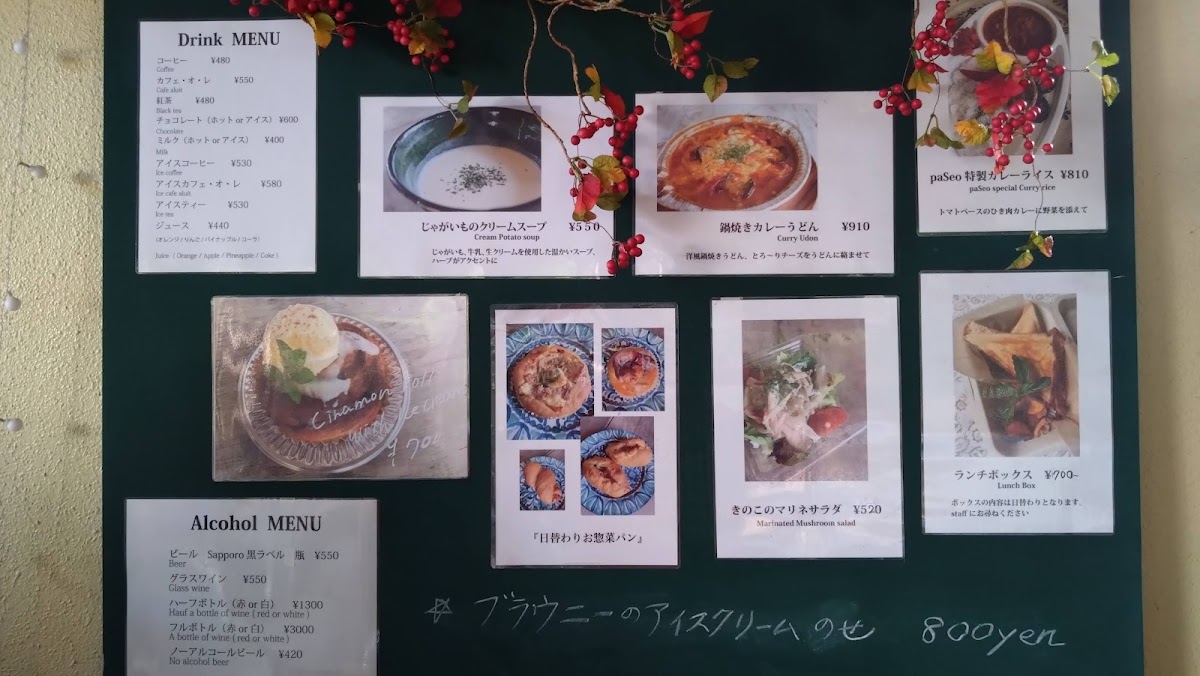 Drink MENU
コーヒー ¥480
Coffee
カフェ・オ・レ ¥550
Cafe aluit
紅茶 ¥480
Black tea
チョコレート（ホット or アイス）¥600
Chocolate
ミルク（ホット or アイス） ¥400
Milk
アイスコーヒー ¥530
Ice coffee
アイスカフェ・オ・レ ¥580
Ice cafe aluit
アイスティー ¥530
Ice tea
ジュース ¥440
（オレンジ / りんご / パイナップル / コーラ）
Juice（Orange / Apple / Pineapple / Coke）
じゃがいものクリームスープ ¥550
Cream Potato soup
じゃがいも、牛乳、生クリームを使用した温かいスープ、
ハーブがアクセントに
鍋焼きカレーうどん ¥910
Curry Udon
洋風鍋焼きうどん、とろ〜りチーズをうどんに絡ませて
paSeo 特製カレーライス ¥810
paSeo special Curry rice
トマトベースのひき肉カレーに野菜を添えて
Cinamon roll
with Ice cream
¥700
『日替わりお惣菜パン』
きのこのマリネサラダ ¥520
Marinated Mushroom salad
ランチボックス ¥700~
Lunch Box
ボックスの内容は日替わりとなります、
staff にお尋ねください
Alcohol MENU
ビール Sapporo 黒ラベル 瓶 ¥550
Beer
グラスワイン ¥550
Glass wine
ハーフボトル（赤 or 白） ¥1300
Hauf a bottle of wine ( red or white )
フルボトル（赤 or 白） ¥3000
A bottle of wine ( red or white )
ノーアルコールビール ¥420
No alcohol beer
☆ ブラウニーのアイスクリームのせ 800yen